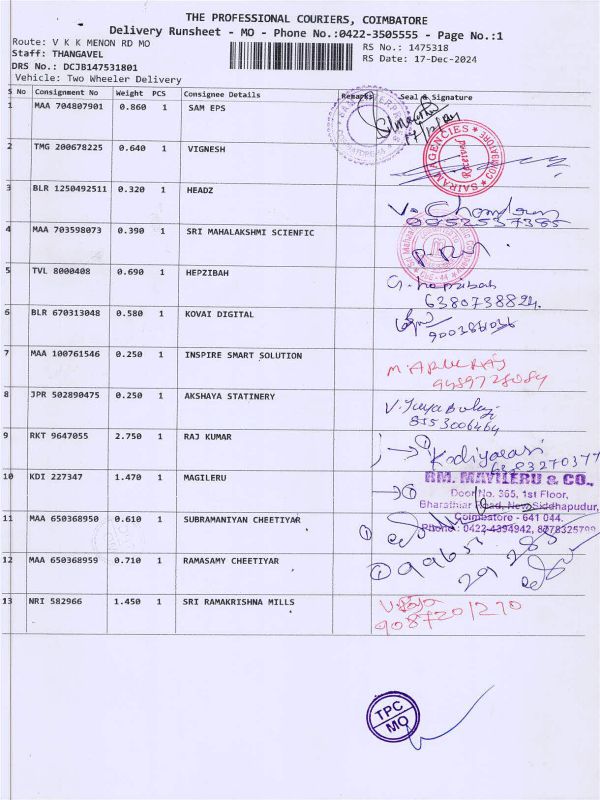 THE PROFESSIONAL COURIERS, COIMBATORE
Delivery Runsheet - MO - Phone No.:0422-3505555 - Page No.:1
Route: V K K MENON RD MO
RS No.: 1475318
Staff: THANGAVEL
RS Date: 17-Dec-2024
DRS No.: DCJB147531801
Vehicle: Two Wheeler Delivery
S No Consignment No Weight PCS Consignee Details Remarks Seal & Signature
1 MAA 704807901 0.860 1 SAM EPS
2 TMG 200678225 0.640 1 VIGNESH
SAIRAM AGENCIES COIMBATORE
Received
3 BLR 1250492511 0.320 1 HEADZ
V. Chandran
4 MAA 703598073 0.390 1 SRI MAHALAKSHMI SCIENFIC
5 TVL 8000408 0.690 1 HEPZIBAH
6380738824.
6 BLR 670313048 0.580 1 KOVAI DIGITAL
7 MAA 100761546 0.250 1 INSPIRE SMART SOLUTION
M. ARUL RAJ
9489728084
8 JPR 502890475 0.250 1 AKSHAYA STATINERY
V. Jaya Balaji
8153006464
9 RKT 9647055 2.750 1 RAJ KUMAR
Kodiyarasi
6383270377
10 KDI 227347 1.470 1 MAGILERU
RM. MAYILERU & CO.,
Door No. 365, 1st Floor,
Bharathiar Road, New Siddhapudur,
Coimbatore - 641 044.
Phone : 0422-4394942, 8778325799
11 MAA 650368950 0.610 1 SUBRAMANIYAN CHEETIYAR
12 MAA 650368959 0.710 1 RAMASAMY CHEETIYAR
13 NRI 582966 1.450 1 SRI RAMAKRISHNA MILLS
9087201270
TPC
MO